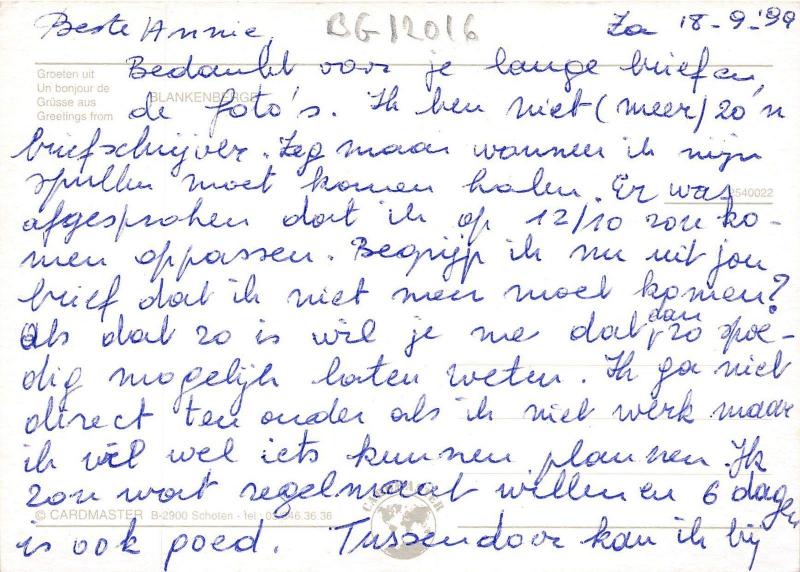 BG12016
Beste Annie,
Za 18-9-'99
Groeten uit
Un bonjour de
Grüsse aus
Greetings from
BLANKENBERGE
Bedankt voor je lange brief en
de foto's. Ik ben niet (meer) zo'n
briefschrijver. Zeg maar wanneer ik mijn
spullen moet komen halen. Er was
2540022
afgesproken dat ik op 12/10 zou ko-
men oppassen. Begrijp ik nu uit jou
brief dat ik niet meer moet komen?
Als dat zo is wil je me dat dan zo spoe-
dig mogelijk laten weten. Ik ga niet
direct ten onder als ik niet werk maar
ik wil wel iets kunnen plannen. Ik
zou wat regelmaat willen en 6 dagen
CARDMASTER
© CARDMASTER B-2900 Schoten - tel : 03/646.36.36
is ook goed. Tussendoor kan ik bij